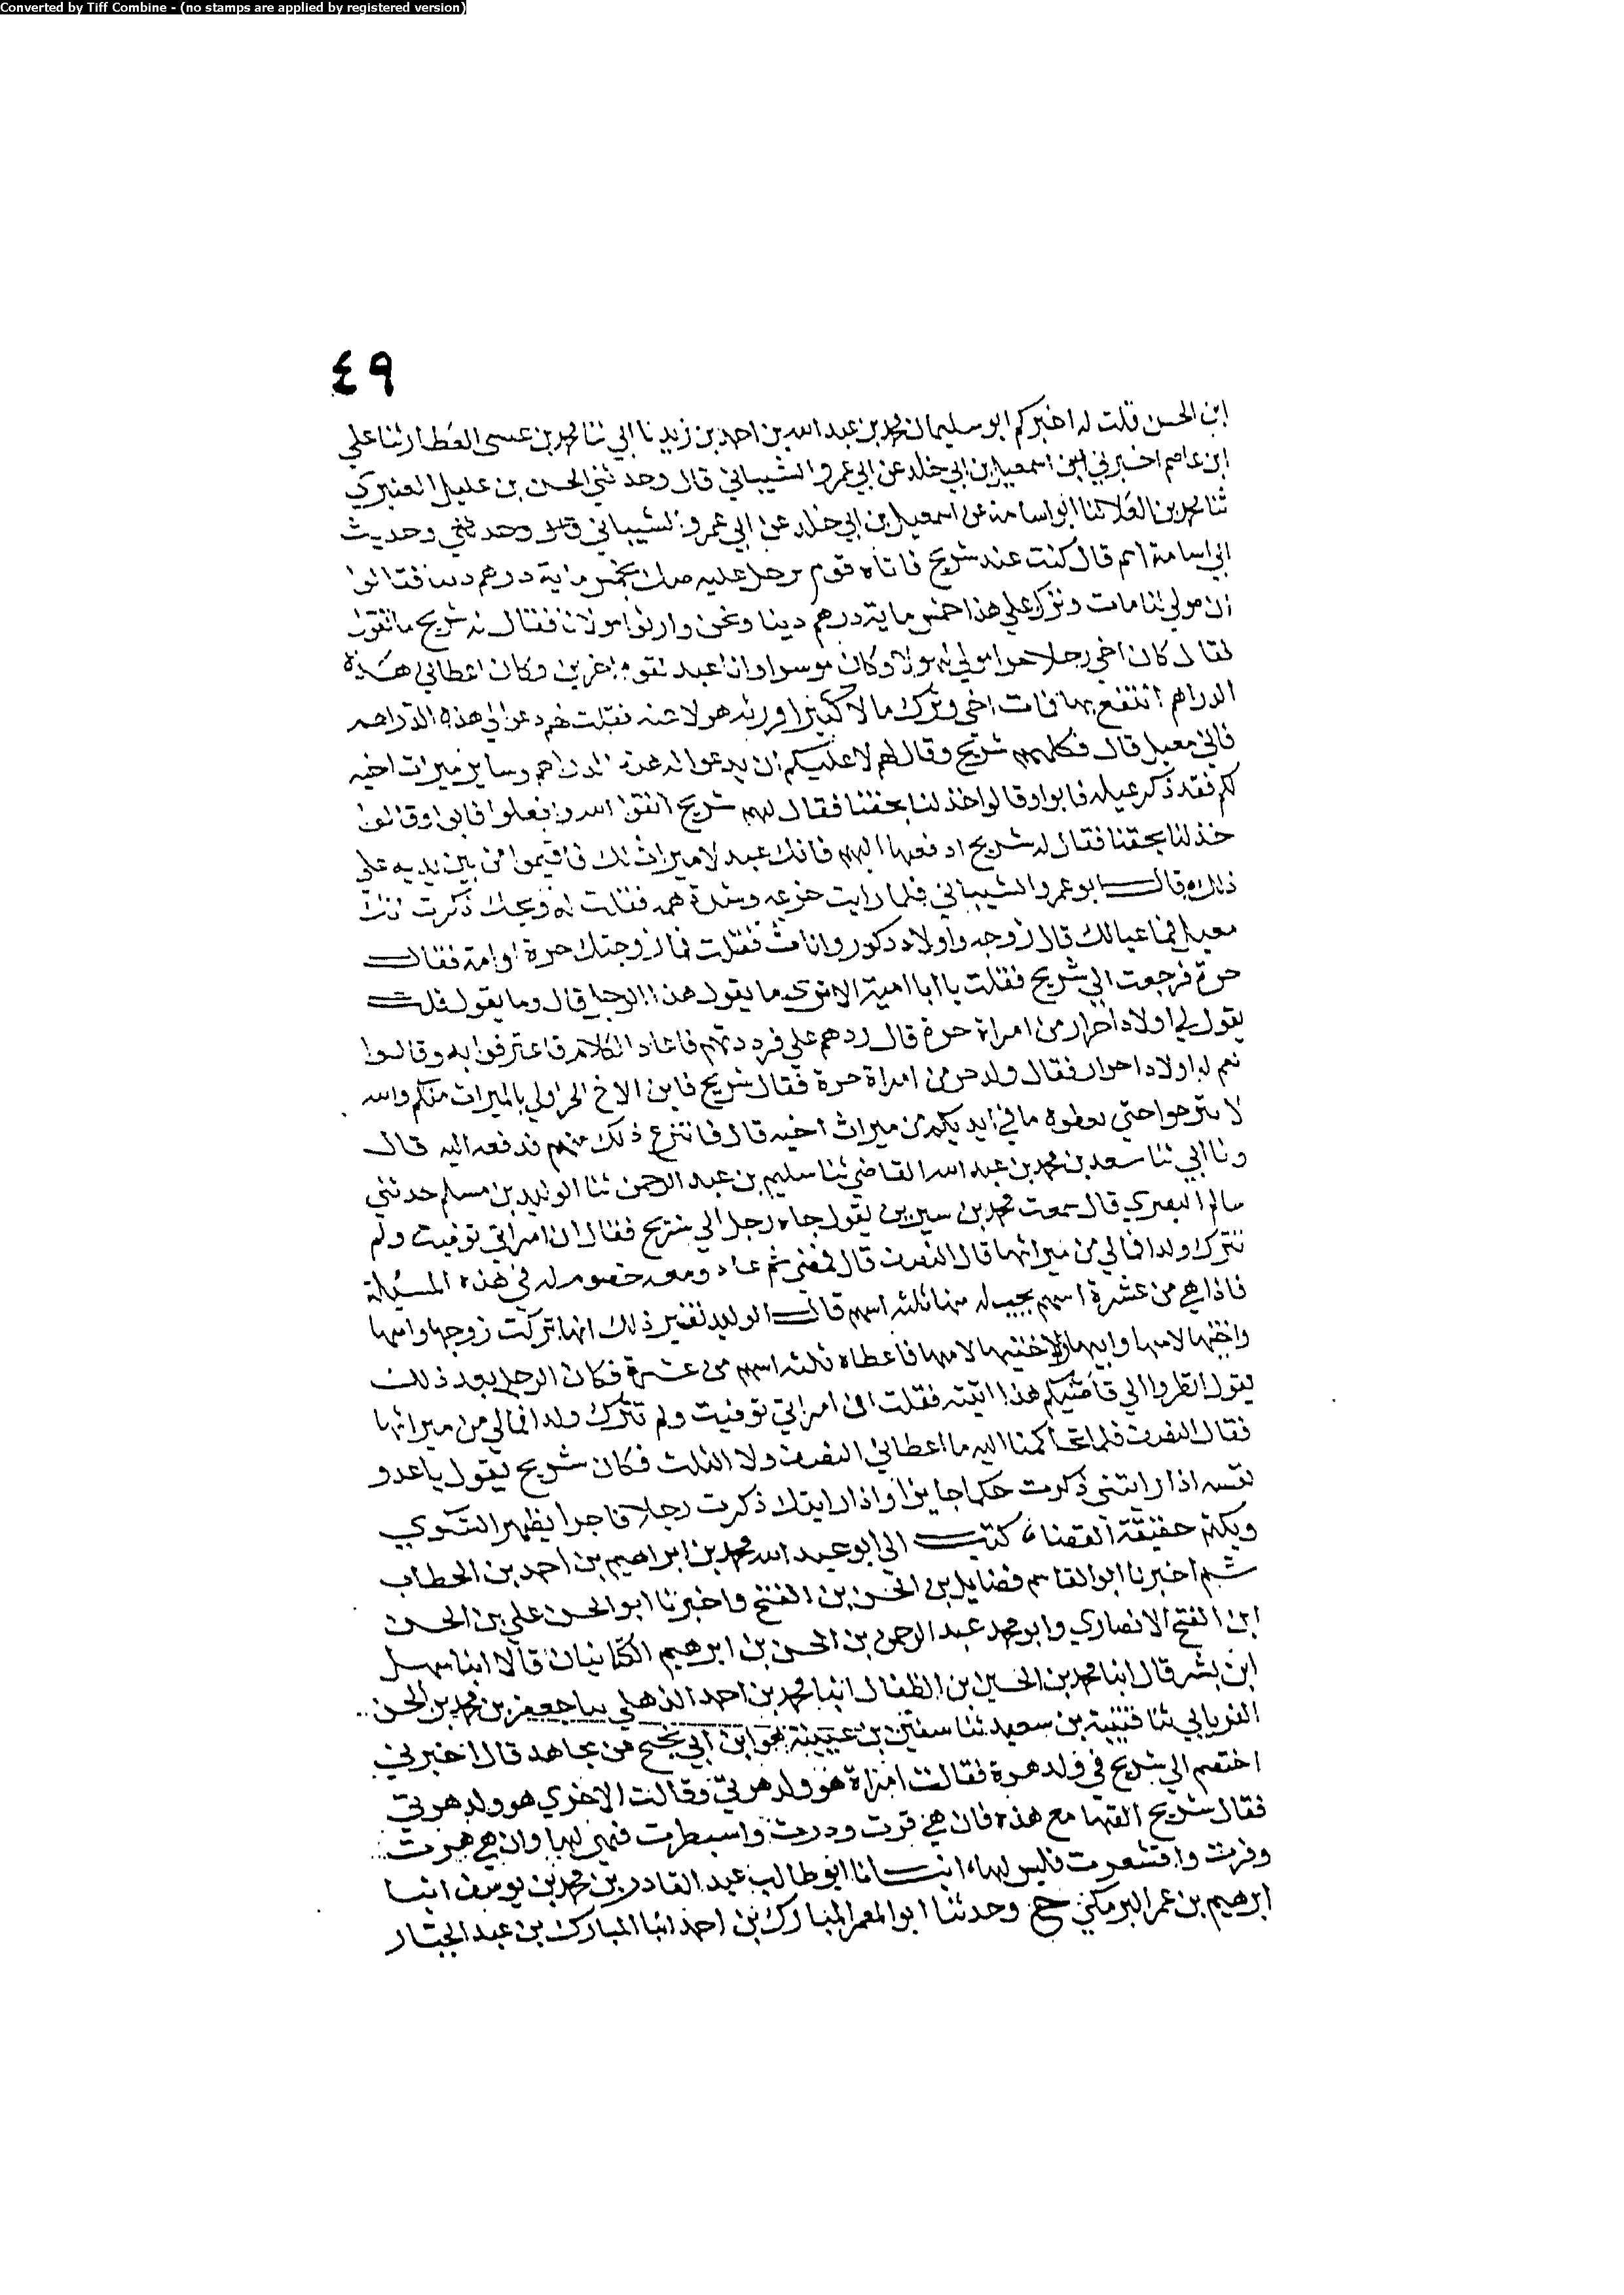 Converted by Tiff Combine - (no stamps are applied by registered version)
٤٩
ابن الحسن قلت له اخبركم ابو سليمان محمد بن عبد الله بن احمد بن زبد نا ابي ثنا محمد بن عيسى العطار ثنا علي
ابن عاصم اخبرني اسمعيل بن ابي خلد عن ابي عمرو الشيباني قال وحدثني الحسن بن عليل العنبري
ثنا محمد بن العلا ثنا ابو اسامة عن اسمعيل بن ابي خلد عن ابي عمرو الشيباني وحدثني وحديث
ابي اسامة اتم قال كنت عند شريح فاتاه قوم برجل عليه صك بخمس ماية درهم دينا فقالوا
ان مولي لنا مات وترك علي هذا خمس ماية درهم دينا ونحن وارثوا مولانا فقال له شريح ما تقول
فقال كان اخي رجلا حرا مولي لهولا وكان موسرا وانا عبد لقوم اخرين وكان اعطاني هذه
الدراهم انتفع بها فمات اخي وترك مالا كثيرا ورثه هولا عنه فقلت لهم دعوا لي هذه الدراهم
فاني معيل قال فكلمهم شريح وقال لهم لا عليكم ان يدعوا له هذه الدراهم وساير ميراث اخيه
لكم فقد ذكر عيله فابوا وقالوا خذ لنا بحقنا فقال لهم شريح اتقوا الله وافعلوا فابوا وقالوا
خذ لنا بحقنا فقال له شريح ادفعها اليهم فانك عبد لا ميراث لك فاقيموا من بين يديه علي
ذلك قال ابو عمرو الشيباني فلما رايت جزعه وشدة همه فقلت له ويحك ذكرت انك
معيل فما عيالك قال زوجه واولاد ذكور واناث فقلت فما زوجتك حرة او امة فقال
حرة فرجعت الي شريح فقلت يا ابا امية الا تري ما يقول هذا الرجل قال وما يقول قلت
يقول لي اولاد احرار من امراة حرة قال ردهم علي فرددتهم فاعاد الكلام فاعترفوا به وقالوا
نعم له اولاد احرار فقال ولد حر من امراة حرة فقال شريح فابن الاخ الحر اولي بالميراث منكم والله
لا تبرحوا حتي تعطوه ما في ايديكم من ميراث اخيه قال فانتزع ذلك منهم فدفعه اليه قال
ونا ابي ثنا سعد بن محمد بن عبد الله القاضي ثنا سليم بن عبد الرحمن ثنا الوليد بن مسلم حدثني
سالم البصري قال سمعت محمد بن سيرين يقول جاء رجل الي شريح فقال ان امراتي توفيت ولم
تترك ولدا فمالي من ميراثها قال النصف قال فمضي ثم عاد ومعه خصوم له في هذه المسئلة
فاذا هي من عشرة اسهم يجب له منها ثلثه اسهم قال الوليد تفسير ذلك انها تركت زوجها وامها
واختها لامها وابيها ولاختيها لامها فاعطاه ثلثه اسهم من عشرة فكان الرجل بعد ذلك
يقول انظروا الي قاضيكم هذا اتيته فقلت ان امراتي توفيت ولم تترك ولدا فمالي من ميراثها
فقال النصف فلما تحاكمنا اليه ما اعطاني النصف ولا الثلث فكان شريح يقول يا عدو
نفسه اذا رايتني ذكرت حكما جايرا واذا رايتك ذكرت رجلا فاجرا يظهر الشكوي
ويكتم حقيقة القضاء كتب الي ابو عبد الله محمد بن ابراهيم بن احمد بن الحطاب
ثم اخبرنا ابو القاسم فضايل بن الحسن بن الفتح واخبرنا ابو الحسن علي بن الحسن
ابن الفتح الانصاري وابو محمد عبد الرحمن بن الحسن بن ابرهيم الكتانيان قالا ابنا سهل
ابن بشر قال ابنا محمد بن الحسين بن الطفال ابنا محمد بن احمد الذهلي نبا جعفر بن محمد بن الحسن
الفريابي ثنا قتيبة بن سعيد ثنا سفين بن عيينة عن ابن ابي نجيح عن مجاهد قال اخبرني
اختصم الي شريح في ولد هرة فقالت امراة هو ولد هرتي وقالت الاخري هو ولد هرتي
فقال شريح القها مع هذه فان هي قرت ودرت واسبطرت فهي لها وان هي هرت
وفرت واقشعرت فليس لها انبانا ابو طالب عبد القادر بن محمد بن يوسف ابنا
ابرهيم بن عمر البرمكي ح وحدثنا ابو المعمر المبارك بن احمد ابنا المبارك بن عبد الجبار